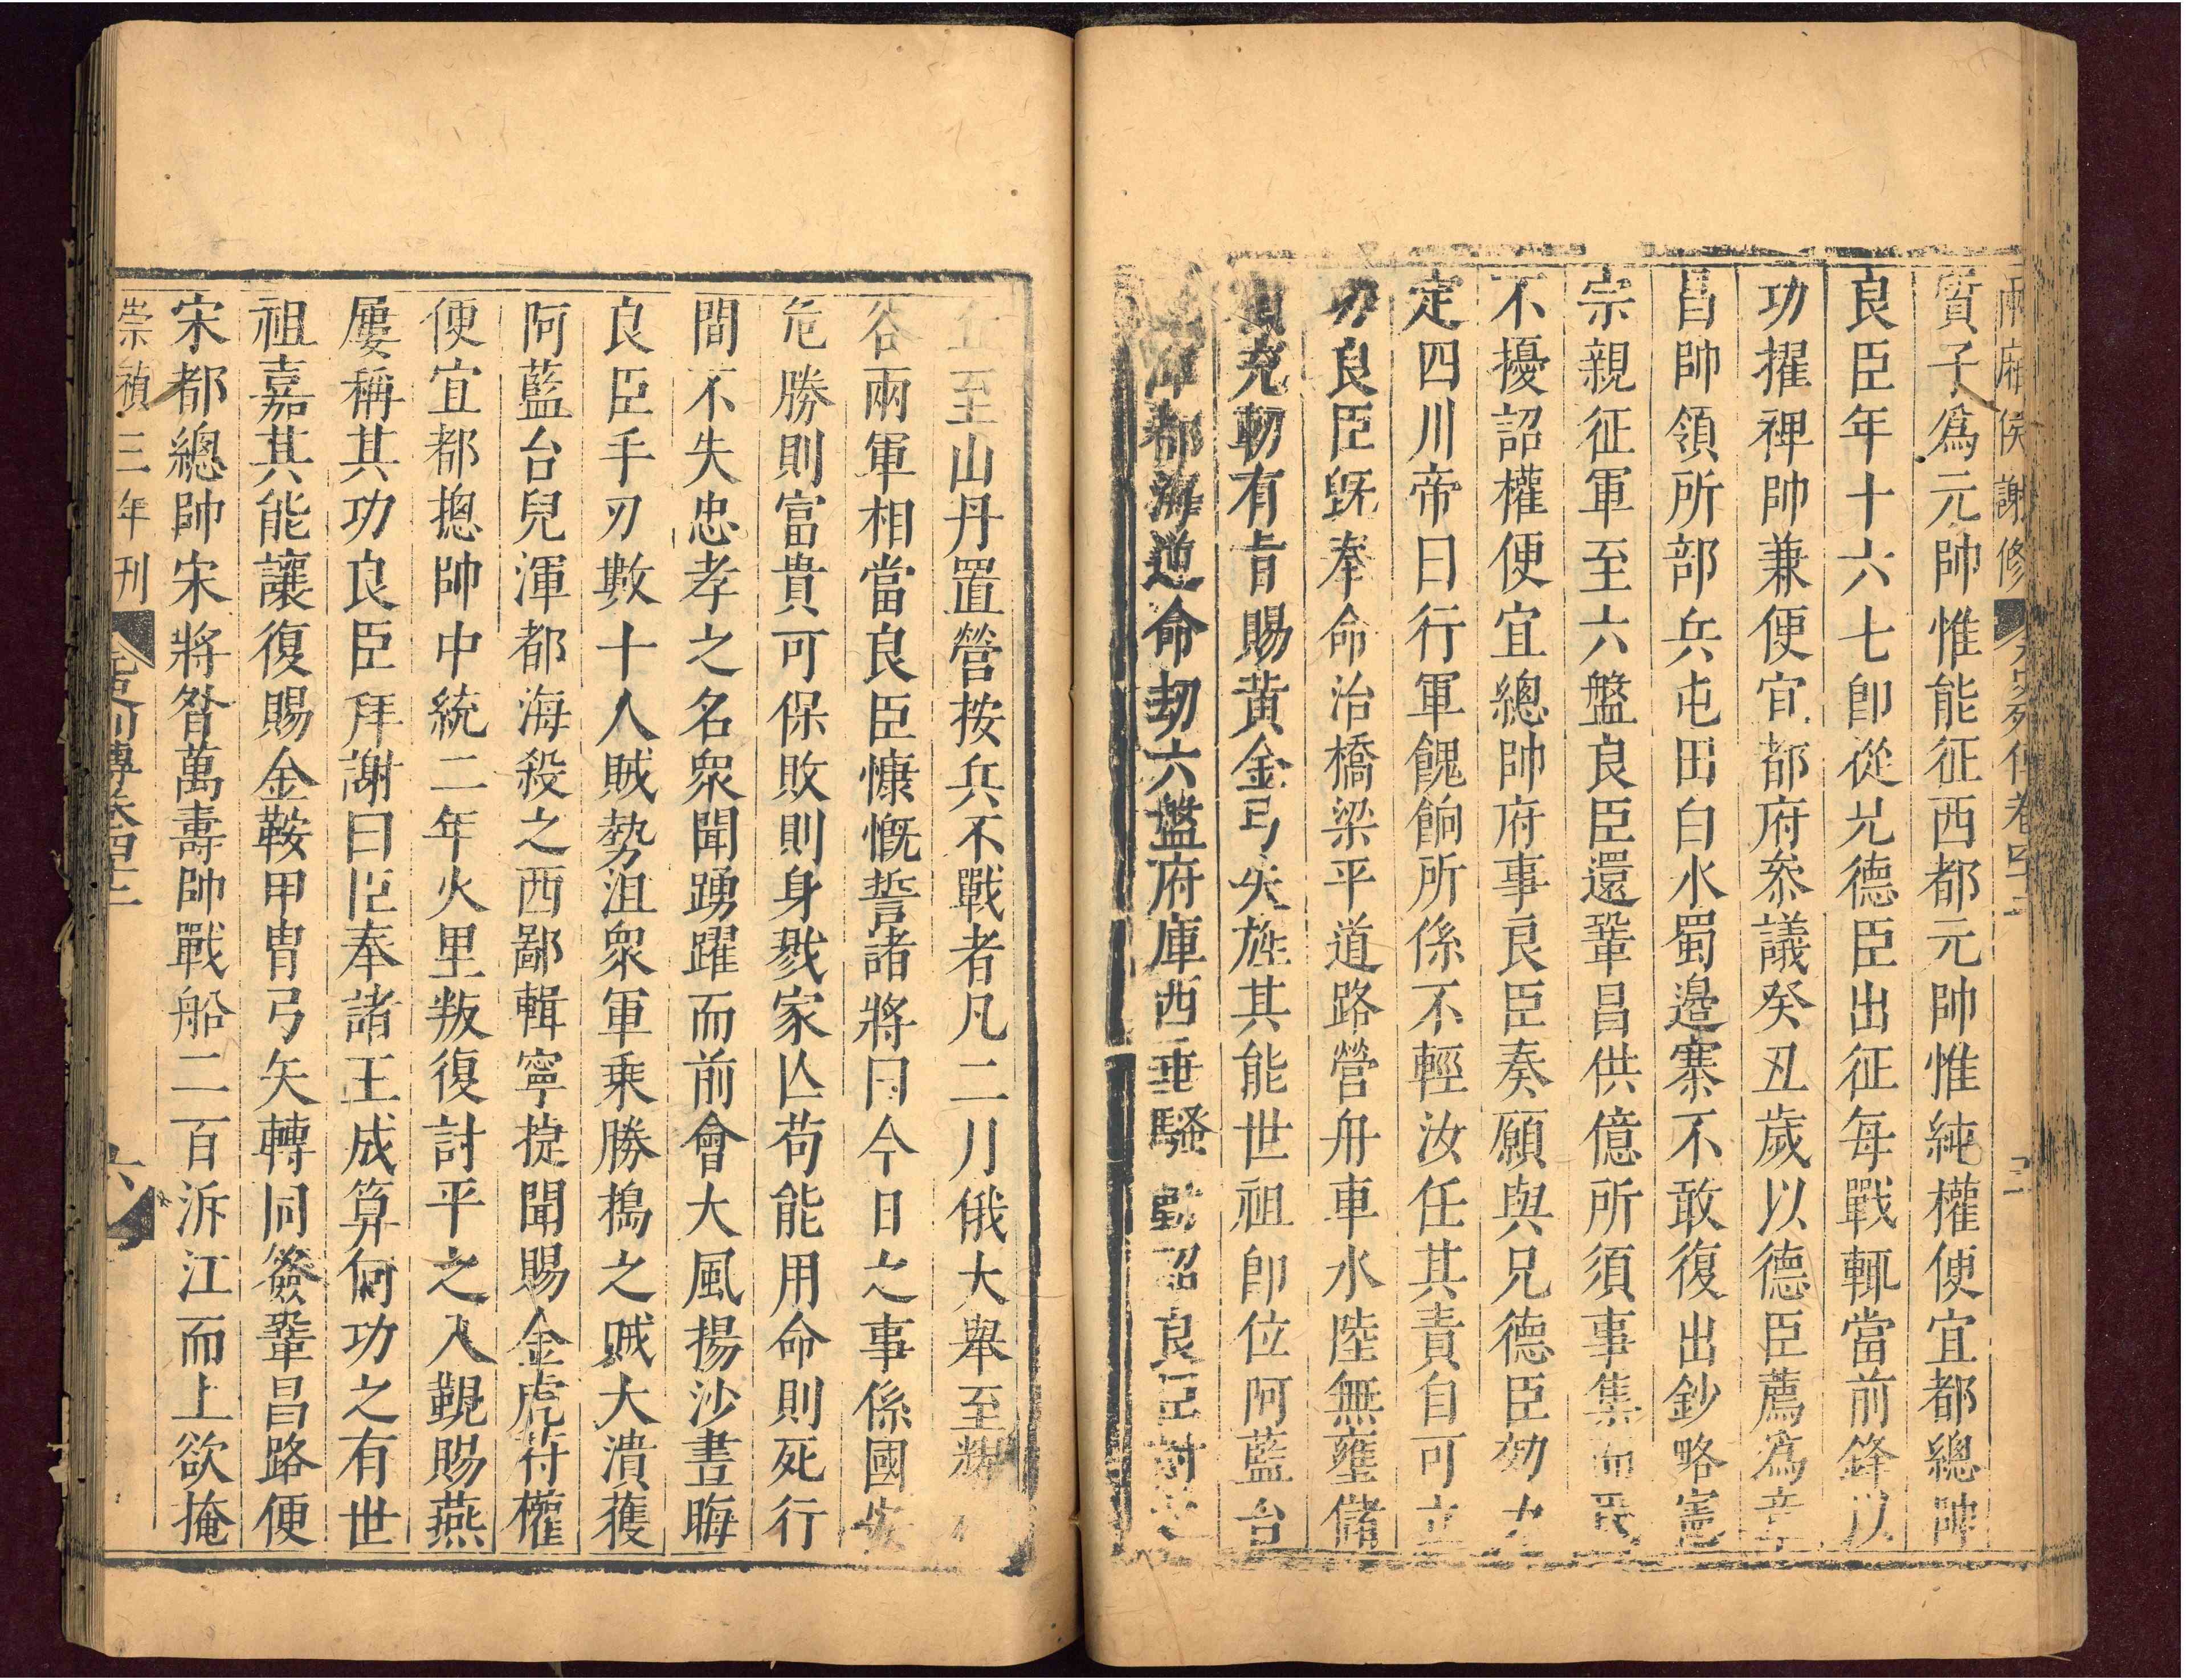 兩廂侯謝修 元史列傳卷四十二
質子為元帥惟能征西都元帥惟純權便宜都總帥
良臣年十六七即從兄德臣出征每戰輒當前鋒以
功擢裨帥兼便宜都府叅議癸丑歲以德臣薦為
昌帥領所部兵屯田白水蜀邊寨不敢復出鈔略憲
宗親征軍至六盤良臣還鞏昌供億所須事集而民
不擾詔權便宜總帥府事良臣奏願與兄德臣効力
定四川帝曰行軍餽餉所係不輕汝任其責自可立
功良臣旣奉命治橋梁平道路營舟車水陸無壅儲
充軔有旨賜黃金弓矢旌其能世祖即位阿藍台
渾都海逆命劫六盤府庫西垂騷動詔良臣討之
至山丹置營按兵不戰者凡二月俄大舉至耀
谷兩軍相當良臣慷慨誓諸將曰今日之事係國安
危勝則富貴可保敗則身戮家亾苟能用命則死行
間不失忠孝之名衆聞踴躍而前會大風揚沙晝晦
良臣手刃數十人賊勢沮衆軍乘勝搗之賊大潰獲
阿藍台兒渾都海殺之西鄙輯寧捷聞賜金虎符權
便宜都摠帥中統二年火里叛復討平之入覲賜燕
屢稱其功良臣拜謝曰臣奉諸王成算何功之有世
祖嘉其能讓復賜金鞍甲冑弓矢轉同簽鞏昌路便
宋都總帥宋將昝萬壽帥戰船二百泝江而上欲掩
崇禎三年刊 元史列傳卷四十二 六